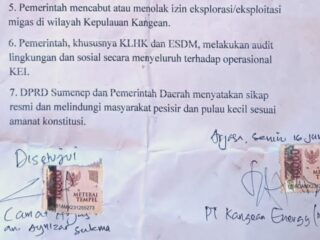 5. Pemerintah mencabut atau menolak izin eksplorasi/eksploitasi
migas di wilayah Kepulauan Kangean.
6. Pemerintah, khususnya KLHK dan ESDM, melakukan audit
lingkungan dan sosial secara menyeluruh terhadap operasional
KEI.
7. DPRD Sumenep dan Pemerintah Daerah menyatakan sikap
resmi dan melindungi masyarakat pesisir dan pulau kecil sesuai
amanat konstitusi.
Arjasa, Senin 16 Jun
Disetujui
METERAI
TEMPEL
Camat Arjasa
an. Aynizar Sukma
PT Kangean Energy